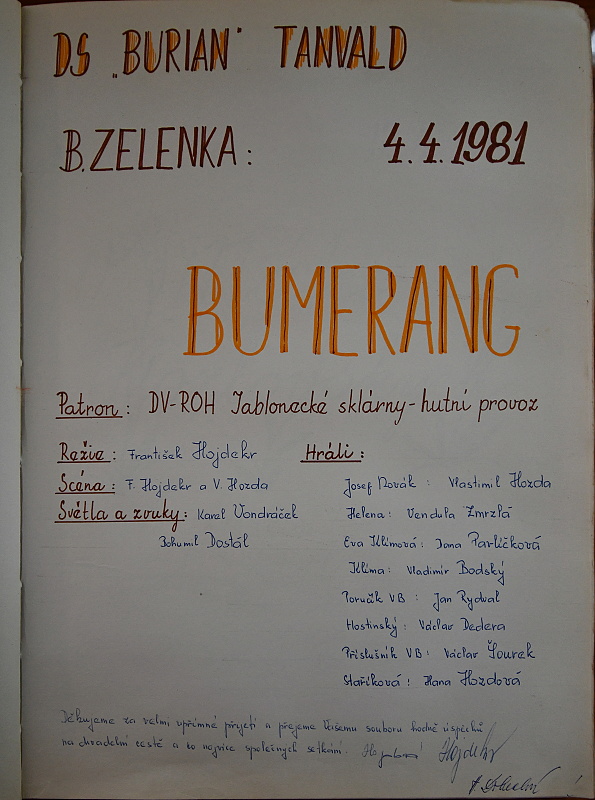 DS „BURIAN" TANVALD
B. ZELENKA: 4. 4. 1981
BUMERANG
Patron: DV-ROH Jablonecké sklárny - hutní provoz
Režie: František Hojdekr
Scéna: F. Hojdekr a V. Hozda
Světla a zvuky: Karel Vondráček
Bohumil Dostál
Hráli:
Josef Novák: Vlastimil Hozda
Helena: Vendula Zmrzlá
Eva Klímová: Jana Pavlíčková
Klíma: Vladimír Bodský
Poručík VB: Jan Rydval
Hostinský: Václav Dedera
Příslušník VB: Václav Šourek
Staříková: Hana Hozdová
Děkujeme za velmi upřímné přijetí a přejeme Vašemu souboru hodně úspěchů
na divadelní cestě a co nejvíce společných setkání. Hojdekr